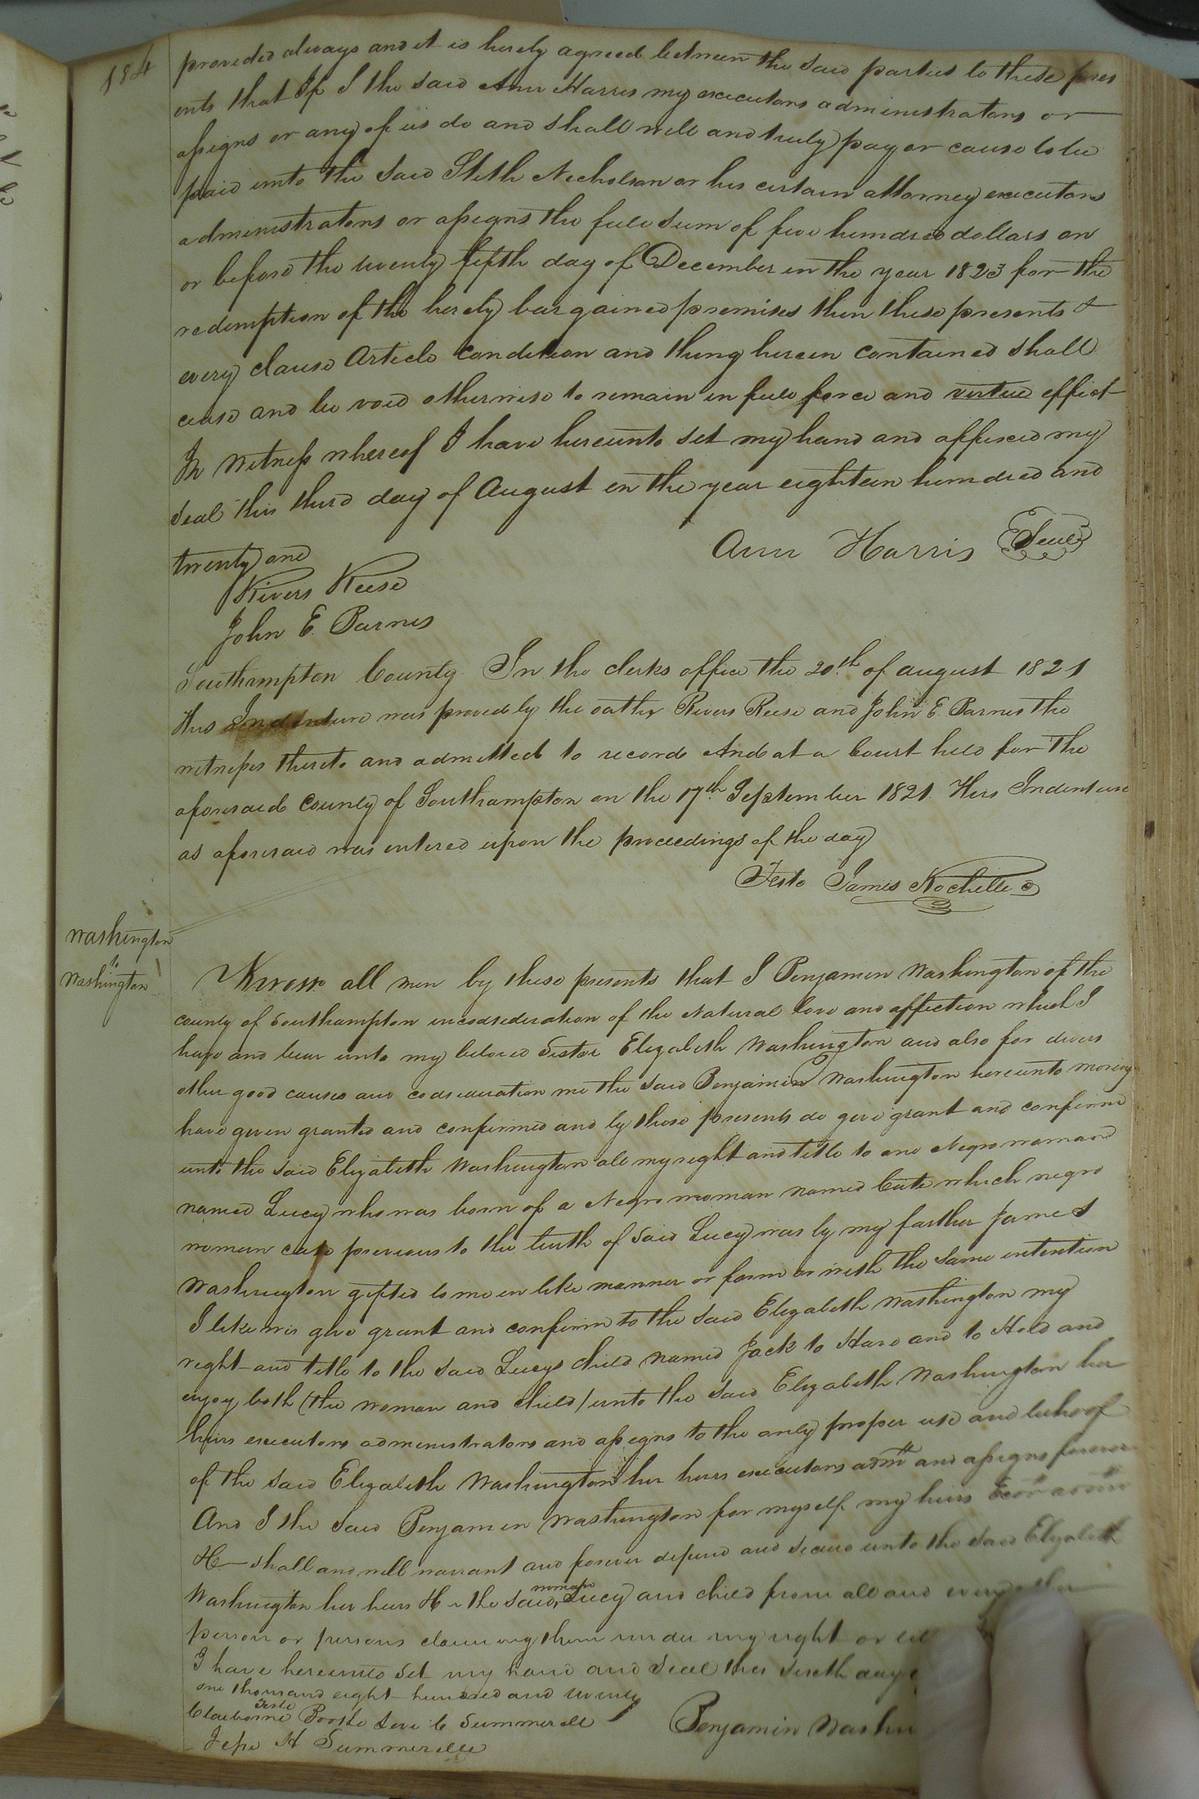 184
provided always and it is hereby agreed between the said parties to these pres
ents that If I the said Ann Harris my executors administrators or
assigns or any of us do and shall well and truly pay or cause to be
paid unto the said Stith Nicholson or his certain attorney executors
administrators or assigns the full sum of five hundred dollars on
or before the twenty fifth day of December in the year 1823 for the
redemption of the hereby bargained premises then these presents &
every clause Article condition and thing herein contained shall
cease and be void otherwise to remain in full force and virtue effect
In Witness whereof I have hereunto set my hand and affixed my
seal this third day of August in the year eighteen hundred and
twenty one
Ann Harris Seal
Rivers Reese
John E. Barnes
Southampton County In the clerks office the 20th of august 1821
This Indenture was proved by the oaths Rivers Reese and John E Barnes the
witnesses thereto and admitted to record And at a Court held for the
aforesaid County of Southampton on the 17th September 1821 This Indenture
as aforesaid was entered upon the proceedings of the day
Teste James Rochelle c
Washington
to
Washington
Know all men by these presents that I Benjamin Washington of the
county of Southampton in consideration of the Natural love and affection which I
have and bear unto my beloved Sister Elizabeth Washington and also for divers
other good causes and consideration me the said Benjamin Washington hereunto moving
have given granted and confirmed and by these presents do give grant and confirm
unto the said Elizabeth Washington all my right and title to one Negro woman
named Lucy who was born of a Negro woman named Cate which negro
woman cate previous to the birth of said Lucy was by my farther James
Washington gifted to me in like manner or form or with the same intention
I likewis give grant and confirm to the said Elizabeth Washington my
right and title to the said Lucys child named Jack to Have and to Hold and
enjoy both (the woman and child) unto the said Elizabeth Washington her
heirs executors administrators and assigns to the only proper use and behoof
of the said Elizabeth Washington her heirs executors admtt and assigns forever
And I the said Benjamin Washington for myself my heirs
&c shall and will warrant and forever defend and secure unto the said Elizabeth
Washington her heirs &c the said woman Lucy and child from all and every other
person or persons claiming them under my right or
I have hereunto set my hand and seal this sixth day
one thousand eight hundred and twenty
Teste
Claiborne Levi C Summerell
Benjamin Washin
Jesse H Summerelle